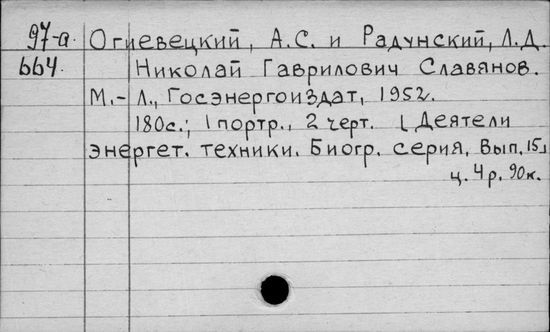 97-а Огиевецкий, А.С. и Радунский, Л.Д.
664. Николай Гаврилович Славянов.
М.-Л., Госэнергоиздат, 1952.
180с.; 1 портр., 2 черт. [Деятели
энергет. техники. Биогр. серия, Вып. 15]
ц. 4 р. 90 к.